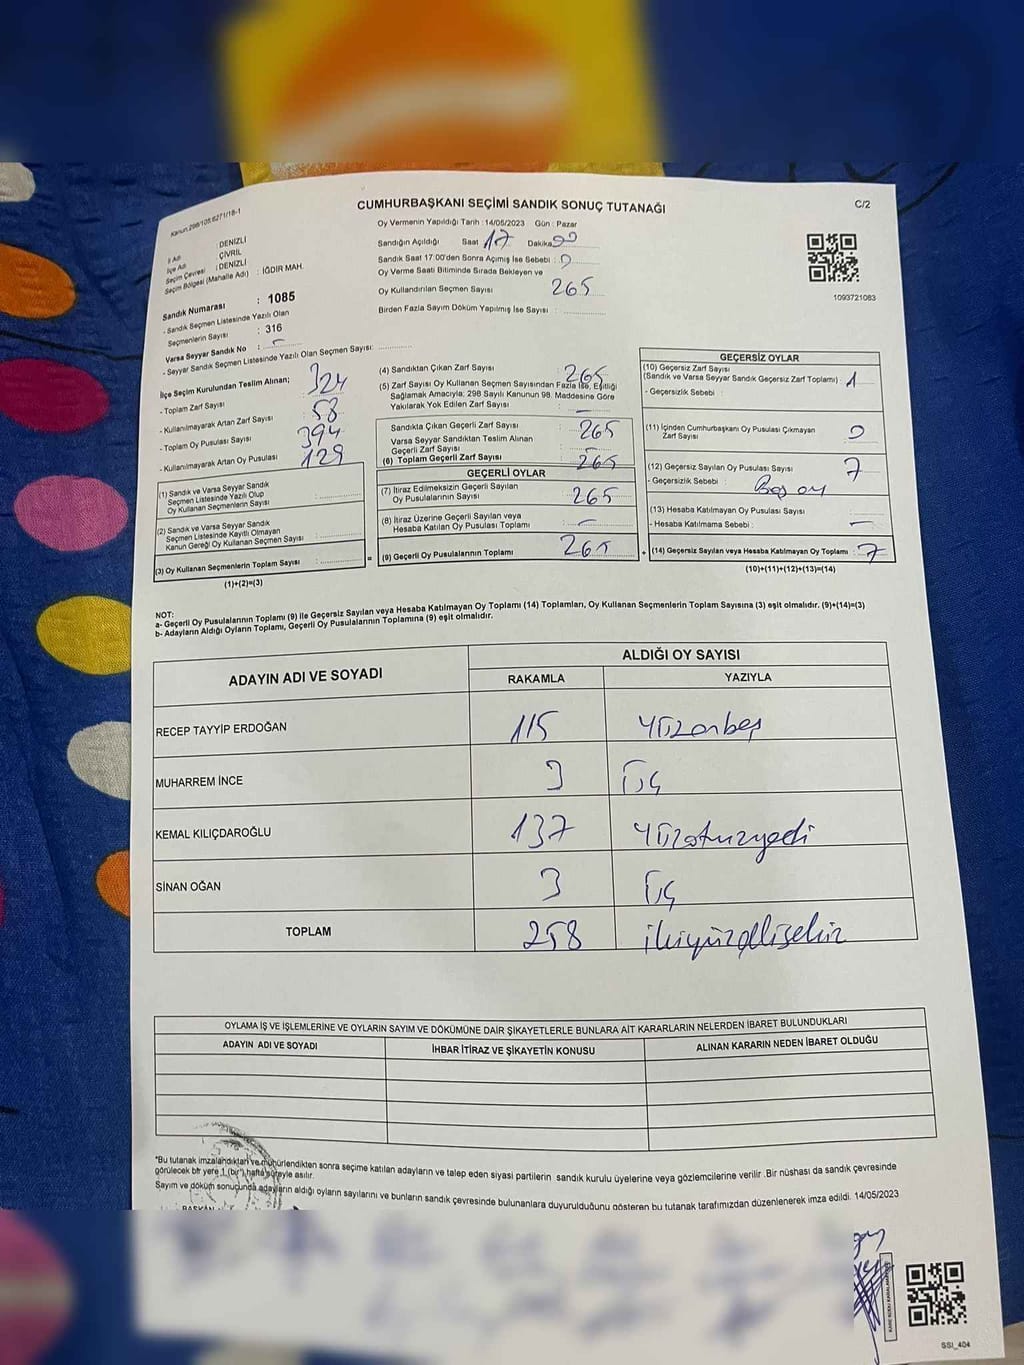 Kanun.298/105;6271/18-1
CUMHURBAŞKANI SEÇİMİ SANDIK SONUÇ TUTANAĞI
C/2
İl Adı : DENİZLİ
İlçe Adı : ÇİVRİL
Seçim Çevresi : DENİZLİ
Seçim Bölgesi (Mahalle Adı) : IĞDIR MAH.
Sandık Numarası : 1085
- Sandık Seçmen Listesinde Yazılı Olan
Seçmenlerin Sayısı : 316
Varsa Seyyar Sandık No : -
- Seyyar Sandık Seçmen Listesinde Yazılı Olan Seçmen Sayısı:
Oy Vermenin Yapıldığı Tarih :14/05/2023 Gün : Pazar
Sandığın Açıldığı Saat 17 Dakika 00
Sandık Saat 17:00'den Sonra Açımış İse Sebebi : 0
Oy Verme Saati Bitiminde Sırada Bekleyen ve
Oy Kullandırılan Seçmen Sayısı 265
Birden Fazla Sayım Döküm Yapılmış İse Sayısı :
1093721083
İlçe Seçim Kurulundan Teslim Alınan;
- Toplam Zarf Sayısı 324
- Kullanılmayarak Artan Zarf Sayısı 58
- Toplam Oy Pusulası Sayısı 394
- Kullanılmayarak Artan Oy Pusulası 129
(1) Sandık ve Varsa Seyyar Sandık
Seçmen Listesinde Yazılı Olup
Oy Kullanan Seçmenlerin Sayısı :
(2) Sandık ve Varsa Seyyar Sandık
Seçmen Listesinde Kayıtlı Olmayan
Kanun Gereği Oy Kullanan Seçmen Sayısı :
(3) Oy Kullanan Seçmenlerin Toplam Sayısı :
(1)+(2)=(3)
(4) Sandıktan Çıkan Zarf Sayısı 265
(5) Zarf Sayısı Oy Kullanan Seçmen Sayısından Fazla İse, Eşitliği
Sağlamak Amacıyla; 298 Sayılı Kanunun 98. Maddesine Göre
Yakılarak Yok Edilen Zarf Sayısı : -
Sandıkta Çıkan Geçerli Zarf Sayısı : 265
Varsa Seyyar Sandıktan Teslim Alınan
Geçerli Zarf Sayısı :
(6) Toplam Geçerli Zarf Sayısı : 265
GEÇERLİ OYLAR
(7) İtiraz Edilmeksizin Geçerli Sayılan
Oy Pusulalarının Sayısı : 265
(8) İtiraz Üzerine Geçerli Sayılan veya
Hesaba Katılan Oy Pusulası Toplamı : -
= (9) Geçerli Oy Pusulalarının Toplamı : 265
GEÇERSİZ OYLAR
(10) Geçersiz Zarf Sayısı
(Sandık ve Varsa Seyyar Sandık Geçersiz Zarf Toplamı) : 1
- Geçersizlik Sebebi :
(11) İçinden Cumhurbaşkanı Oy Pusulası Çıkmayan
Zarf Sayısı : 0
(12) Geçersiz Sayılan Oy Pusulası Sayısı : 7
- Geçersizlik Sebebi : Boş oy
(13) Hesaba Katılmayan Oy Pusulası Sayısı :
- Hesaba Katılmama Sebebi : -
+ (14) Geçersiz Sayılan veya Hesaba Katılmayan Oy Toplamı : 7
(10)+(11)+(12)+(13)=(14)
NOT:
a- Geçerli Oy Pusulalarının Toplamı (9) ile Geçersiz Sayılan veya Hesaba Katılmayan Oy Toplamı (14) Toplamları, Oy Kullanan Seçmenlerin Toplam Sayısına (3) eşit olmalıdır. (9)+(14)=(3)
b- Adayların Aldığı Oyların Toplamı, Geçerli Oy Pusulalarının Toplamına (9) eşit olmalıdır.
ADAYIN ADI VE SOYADI ALDIĞI OY SAYISI
RAKAMLA YAZIYLA
RECEP TAYYİP ERDOĞAN 115 Yüzonbeş
MUHARREM İNCE 3 Üç
KEMAL KILIÇDAROĞLU 137 Yüzotuzyedi
SİNAN OĞAN 3 Üç
TOPLAM 258 ikiyüzellisekiz
OYLAMA İŞ VE İŞLEMLERİNE VE OYLARIN SAYIM VE DÖKÜMÜNE DAİR ŞİKAYETLERLE BUNLARA AİT KARARLARIN NELERDEN İBARET BULUNDUKLARI
ADAYIN ADI VE SOYADI İHBAR İTİRAZ VE ŞİKAYETİN KONUSU ALINAN KARARIN NEDEN İBARET OLDUĞU
*Bu tutanak imzalandıktan ve mühürlendikten sonra seçime katılan adayların ve talep eden siyasi partilerin sandık kurulu üyelerine veya gözlemcilerine verilir .Bir nüshası da sandık çevresinde
görülecek bir yere 1 (bir) hafta süreyle asılır.
Sayım ve döküm sonucunda adayların aldığı oyların sayılarını ve bunların sandık çevresinde bulunanlara duyurulduğunu gösteren bu tutanak tarafımızdan düzenlenerek imza edildi. 14/05/2023
BAŞKAN
SSI_404